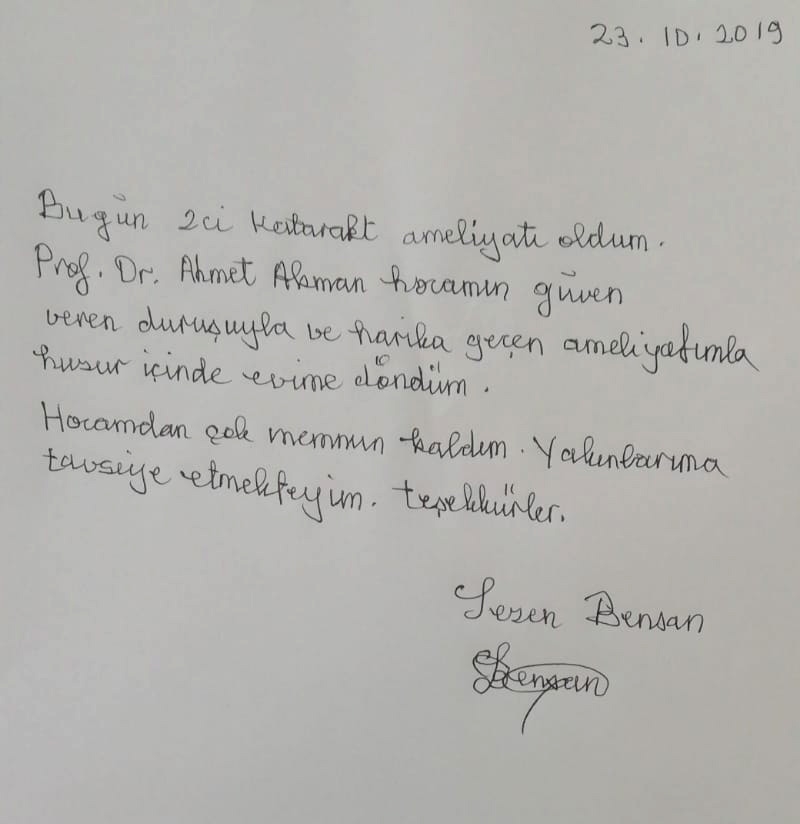 23.10.2019
Bugün 2ci katarakt ameliyatı oldum.
Prof. Dr. Ahmet Akman hocamın güven
veren duruşuyla ve harika geçen ameliyatımla
huzur içinde evime döndüm.
Hocamdan çok memnun kaldım. Yakınlarıma
tavsiye etmekteyim. teşekkürler.
Sezen Bensan
SBensan